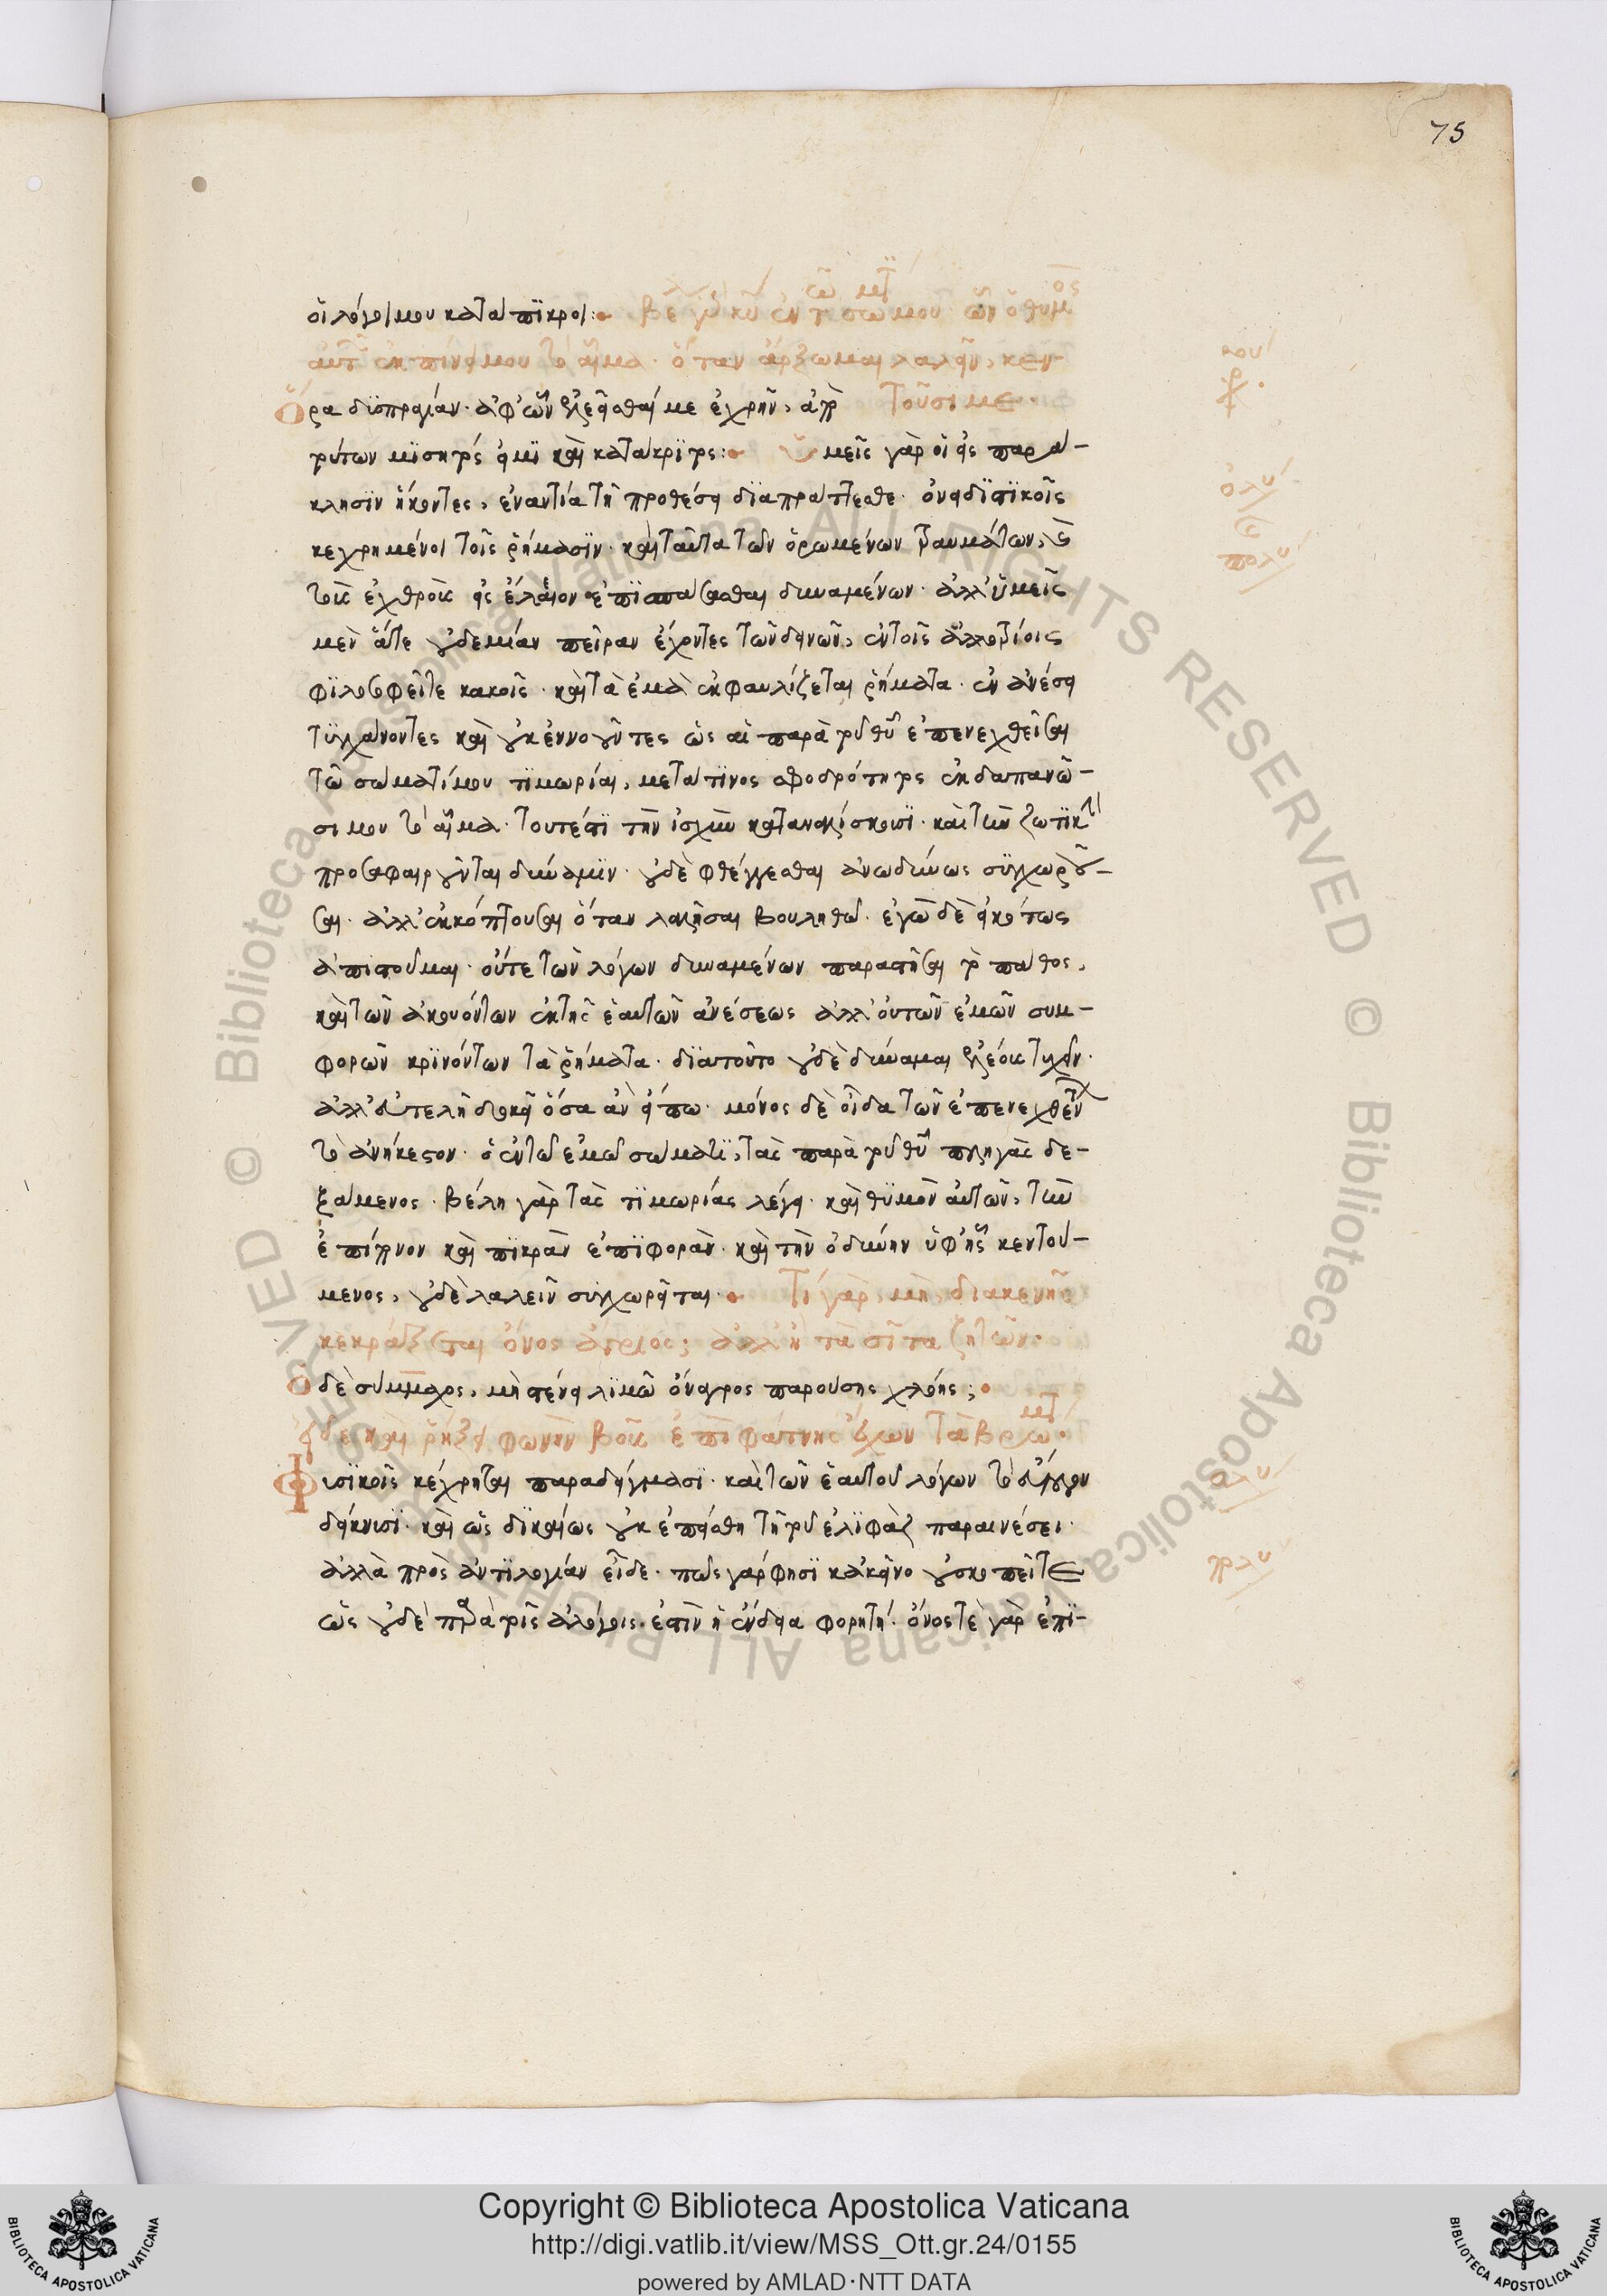 75
οἱ λόγοι μου κατάπικροι: βέλη γὰρ κυ ἐν τῷ σώματί μου ὧν ὁ θυμὸς
αὐτῶν ἐκπίνει μου τὸ αἷμα· ὅταν ἄρξωμαι λαλεῖν, κεν-
Ὅρα δυσπραγίαν· ἀφ' ὧν ἐλεεῖσθαί με ἐχρῆν, ἀπὸ τοῦσί με
τούτων μισητός εἰμι καὶ κατάκριτος: ὑμεῖς γὰρ οἱ εἰς παρά-
κλησιν ἥκοντες, ἐναντία τῇ προθέσει διαπράττεσθε· ὀνειδιστικοῖς
κεχρημένοι τοῖς ῥήμασιν· καὶ ταῦτα τῶν ὁρωμένων τραυμάτων, καὶ
τοὺς ἐχθροὺς εἰς ἔλεον ἐπισπάσασθαι δυναμένων· ἀλλ' ὑμεῖς
μὲν ἅτε οὐδεμίαν πεῖραν ἔχοντες τῶν δεινῶν, ἐν τοῖς ἀλλοτρίοις
φιλοσοφεῖτε κακοῖς· καὶ τὰ ἐμὰ ἐκφαυλίζεται ῥήματα· ἐν ἀνέσει
τυγχάνοντες καὶ οὐκ ἐννοοῦντες ὡς αἱ παρὰ τοῦ θυ ἐπενεχθεῖσαι
τῷ σώματί μου τιμωρίαι, μετά τινος σφοδρότητος ἐκδαπανῶ-
σι μου τὸ αἷμα· τουτέστι τὴν ἰσχὺν καταναλίσκουσι· καὶ τὴν ζωτικὴν
προσαφαιροῦνται δύναμιν· οὐδὲ φθέγγεσθαι ἀνωδύνως συγχωροῦ-
σαι· ἀλλ' ἐκκόπτουσαι ὅταν λαλῆσαι βουληθῶ· ἐγὼ δὲ εἰκότως
ἀπιστοῦμαι· οὔτε τῶν λόγων δυναμένων παραστῆσαι τὸ πάθος,
καὶ τῶν ἀκουόντων ἐκ τῆς ἑαυτῶν ἀνέσεως ἀλλ' οὐ τῶν ἐμῶν συμ-
φορῶν κρινόντων τὰ ῥήματα· διὰ τοῦτο οὐδὲ δύναμαι ἐλέους τυχεῖν·
ἀλλ' εὐτελῆ δοκεῖ ὅσα ἂν εἴπω· μόνος δὲ οἶδα τῶν ἐπενεχθέντων
τὸ ἀνήκεστον· ὁ ἐν τῷ ἐμῷ σώματι, τὰς παρὰ τοῦ θυ πληγὰς δε-
ξάμενος· βέλη γὰρ τὰς τιμωρίας λέγει· καὶ θυμὸν αὐτῶν, τὴν
ἐπίπονον καὶ πικρὰν ἐπιφοράν· καὶ τὴν ὀδύνην ὑφ' ἧς κεντού-
μενος, οὐδὲ λαλεῖν συγχωρεῖται. Τί γάρ, μὴ διακενῆς
κεκράξεται ὄνος ἄγριος; ἀλλ' ἢ τὰ σῖτα ζητῶν·
Ὁ δὲ σύμμαχος, μὴ στένει λιμῷ ὄναγρος παρούσης χλόης;
εἰ δὲ καὶ ῥήξει φωνὴν βοῦς ἐπὶ φάτνης ἔχων τὰ βρώματα·
Φυσικοῖς κέχρηται παραδείγμασι· καὶ τῶν ἑαυτοῦ λόγων τὸ εὔλογον
δείκνυσι· καὶ ὡς δικαίως οὐκ ἐπείσθη τῇ τοῦ ἐλιφὰζ παραινέσει·
ἀλλὰ πρὸς ἀντιλογίαν εἶδε· πῶς γάρ φησι κἀκεῖνο οὐ σκοπεῖτε
ὡς οὐδὲ παρὰ τοῖς ἀλόγοις ἐστὶν ἡ ἔνδεια φορητή· ὄνος τὲ γὰρ ἐπι-
Copyright © Biblioteca Apostolica Vaticana
http://digi.vatlib.it/view/MSS_Ott.gr.24/0155
powered by AMLAD·NTT DATA